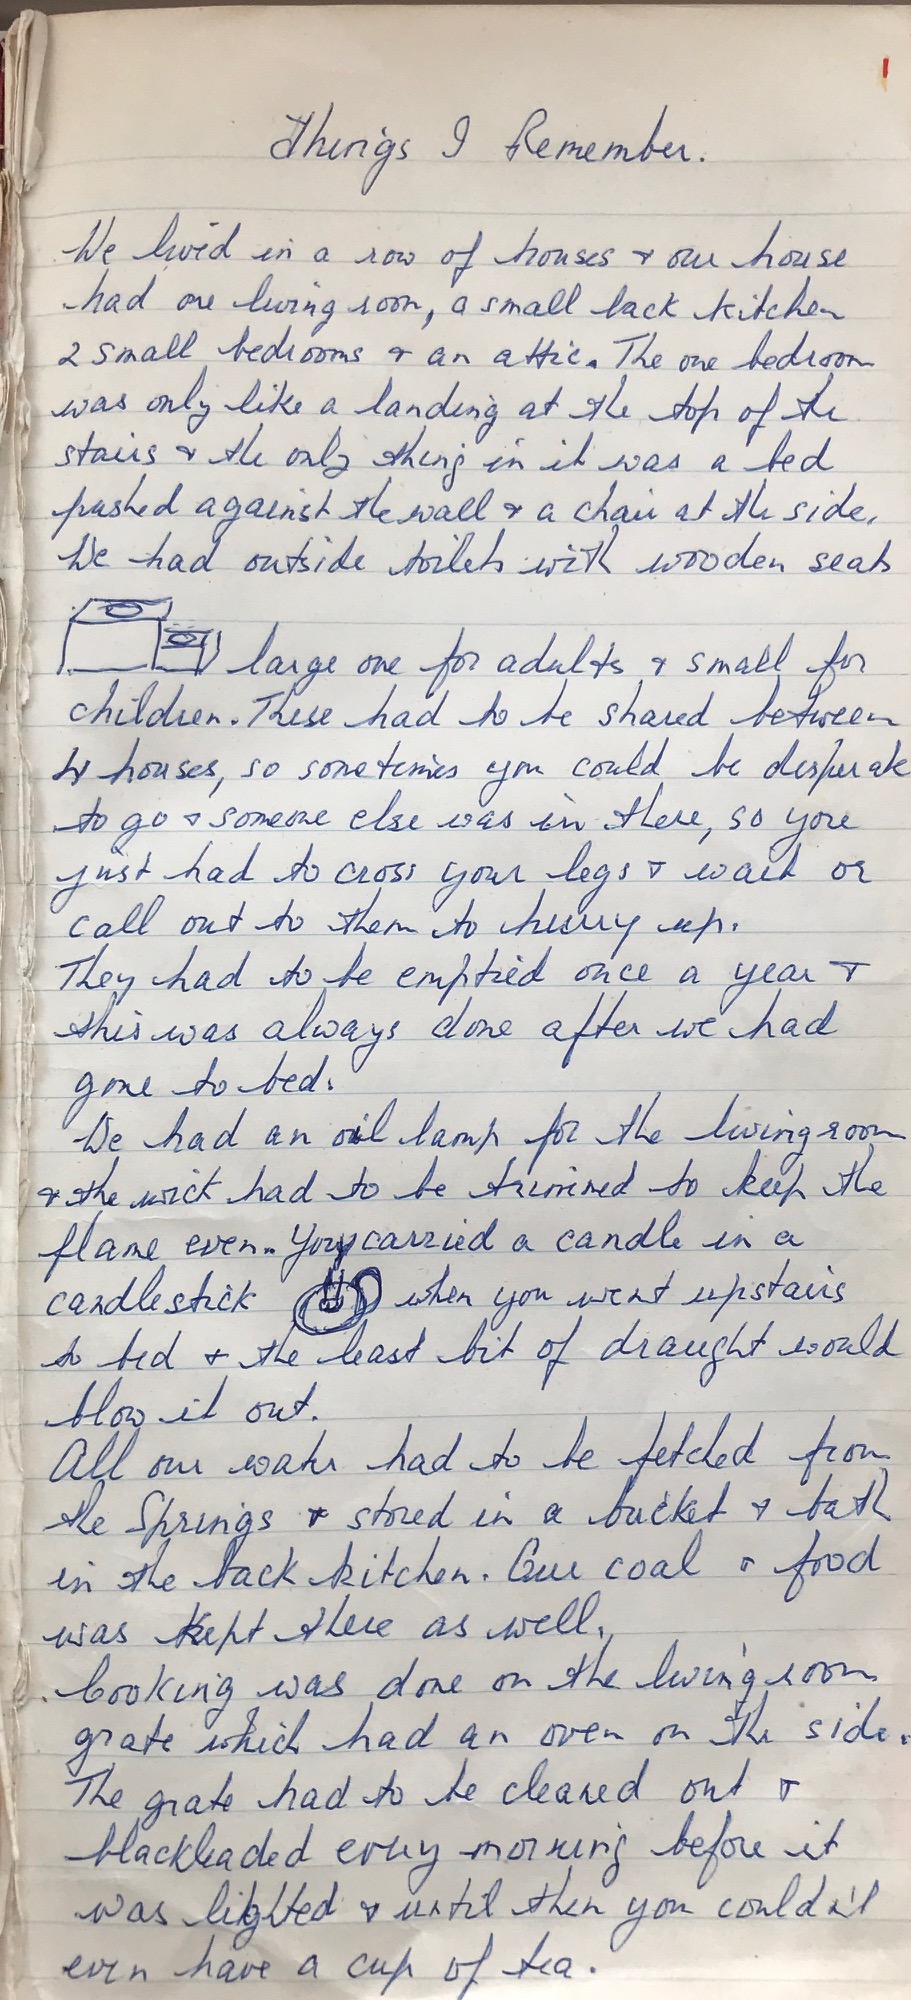 Things I Remember.
We lived in a row of houses & our house
had one living room, a small back kitchen
2 small bedrooms & an attic. The one bedroom
was only like a landing at the top of the
stairs & the only thing in it was a bed
pushed against the wall & a chair at the side.
We had outside toilets with wooden seats
large one for adults & small for
children. These had to be shared between
4 houses, so sometimes you could be desperate
to go & someone else was in there, so you
just had to cross your legs & wait or
call out to them to hurry up.
They had to be emptied once a year &
this was always done after we had
gone to bed.
We had an oil lamp for the living room
& the wick had to be trimmed to keep the
flame even. You carried a candle in a
candlestick when you went upstairs
to bed & the least bit of draught would
blow it out.
All our water had to be fetched from
the Springs & stored in a bucket & bath
in the back kitchen. Our coal & food
was kept there as well.
Cooking was done on the living room
grate which had an oven on the side.
The grate had to be cleared out &
blackleaded every morning before it
was lighted & until then you couldn't
even have a cup of tea.